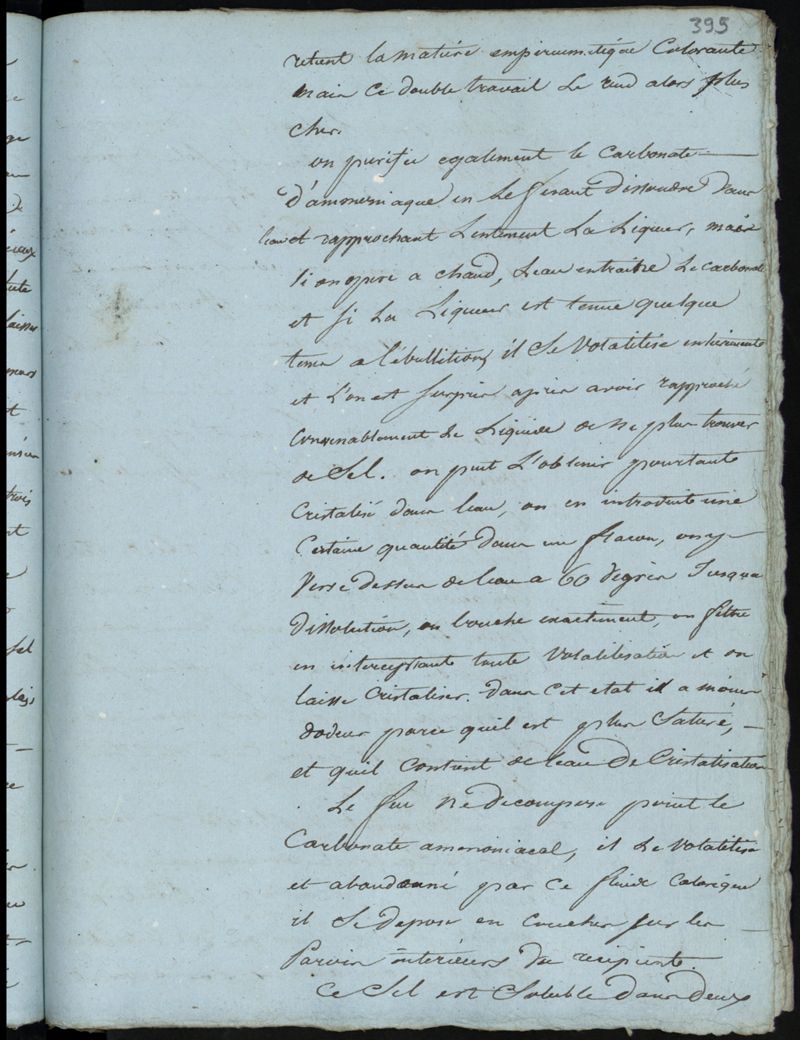 395
retient la matiére empireumatique Colorante
mais ce double travail le rend alors plus
cher.
on purifie egalement le Carbonate
d'ammoniaque en le fesant dissoudre dans
leau et rapprochant Lentement La Liqueur, mais
si on opere a chaud, Leau entraine Le carbonate
et si La Liqueur est tenue quelque
tems a l'ébullition, il se volatilise entierement
et L'on est surpris apres avoir rapproché
Convenablement Le Liquide de ne plus trouver
de Sel. on peut L'obtenir pourtant
Cristalisé dans leau, on en introduit une
Certaine quantité dans un flacon, on y
verse dessus de leau a 60 degrés Jusqua
dissolution, on bouche exactement, on filtre
en interceptant toute volatilisation et on
laisse Cristaliser. dans cet etat il a moins
dodeur parce quil est plus Saturé,
et quil contient de leau de Cristalisation
Le feu ne decompose point le
Carbonate ammoniacal, il Le volatilise
et abandonné par ce fluide Calorique
il Se depose en couches sur les
Parois intérieurs du recipient.
Ce Sel est Soluble dans deux